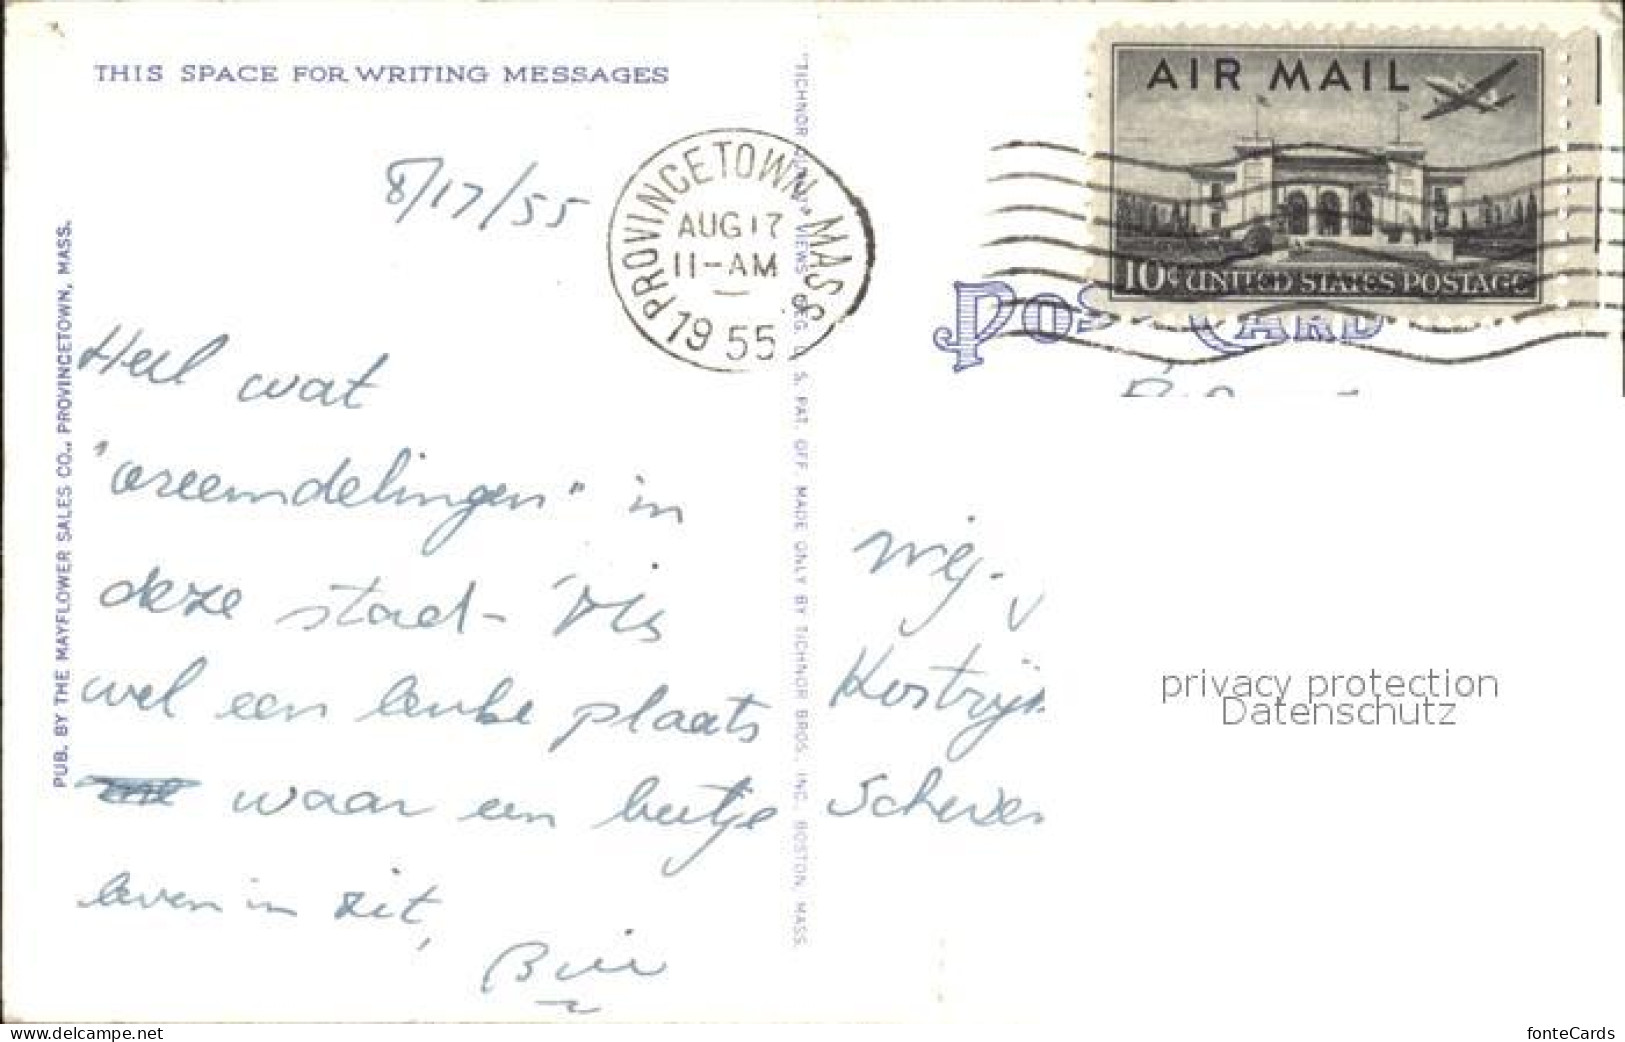 THIS SPACE FOR WRITING MESSAGES
8/17/55
Heel wat
"vreemdelingen" in
deze stad - 't Is
wel een leuke plaats
waar een beetje
leven in zit,
PUB. BY THE MAYFLOWER SALES CO., PROVINCETOWN, MASS.
PROVINCETOWN, MASS.
AUG 17
11-AM
1955
"TICHNOR QUALITY VIEWS" REG. U. S. PAT. OFF. MADE ONLY BY TICHNOR BROS., INC., BOSTON, MASS.
AIR MAIL
10¢ UNITED STATES POSTAGE
POST CARD
Mej.
privacy protection
Datenschutz
www.delcampe.net
fonteCards